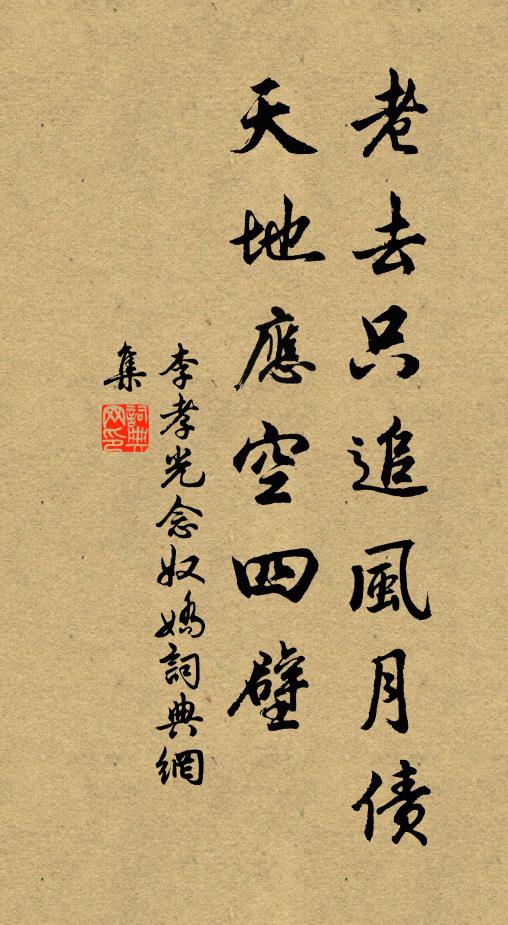 老去只追風月債
天地應空四壁
李孝光念奴嬌詞典網
集
詞典
网印